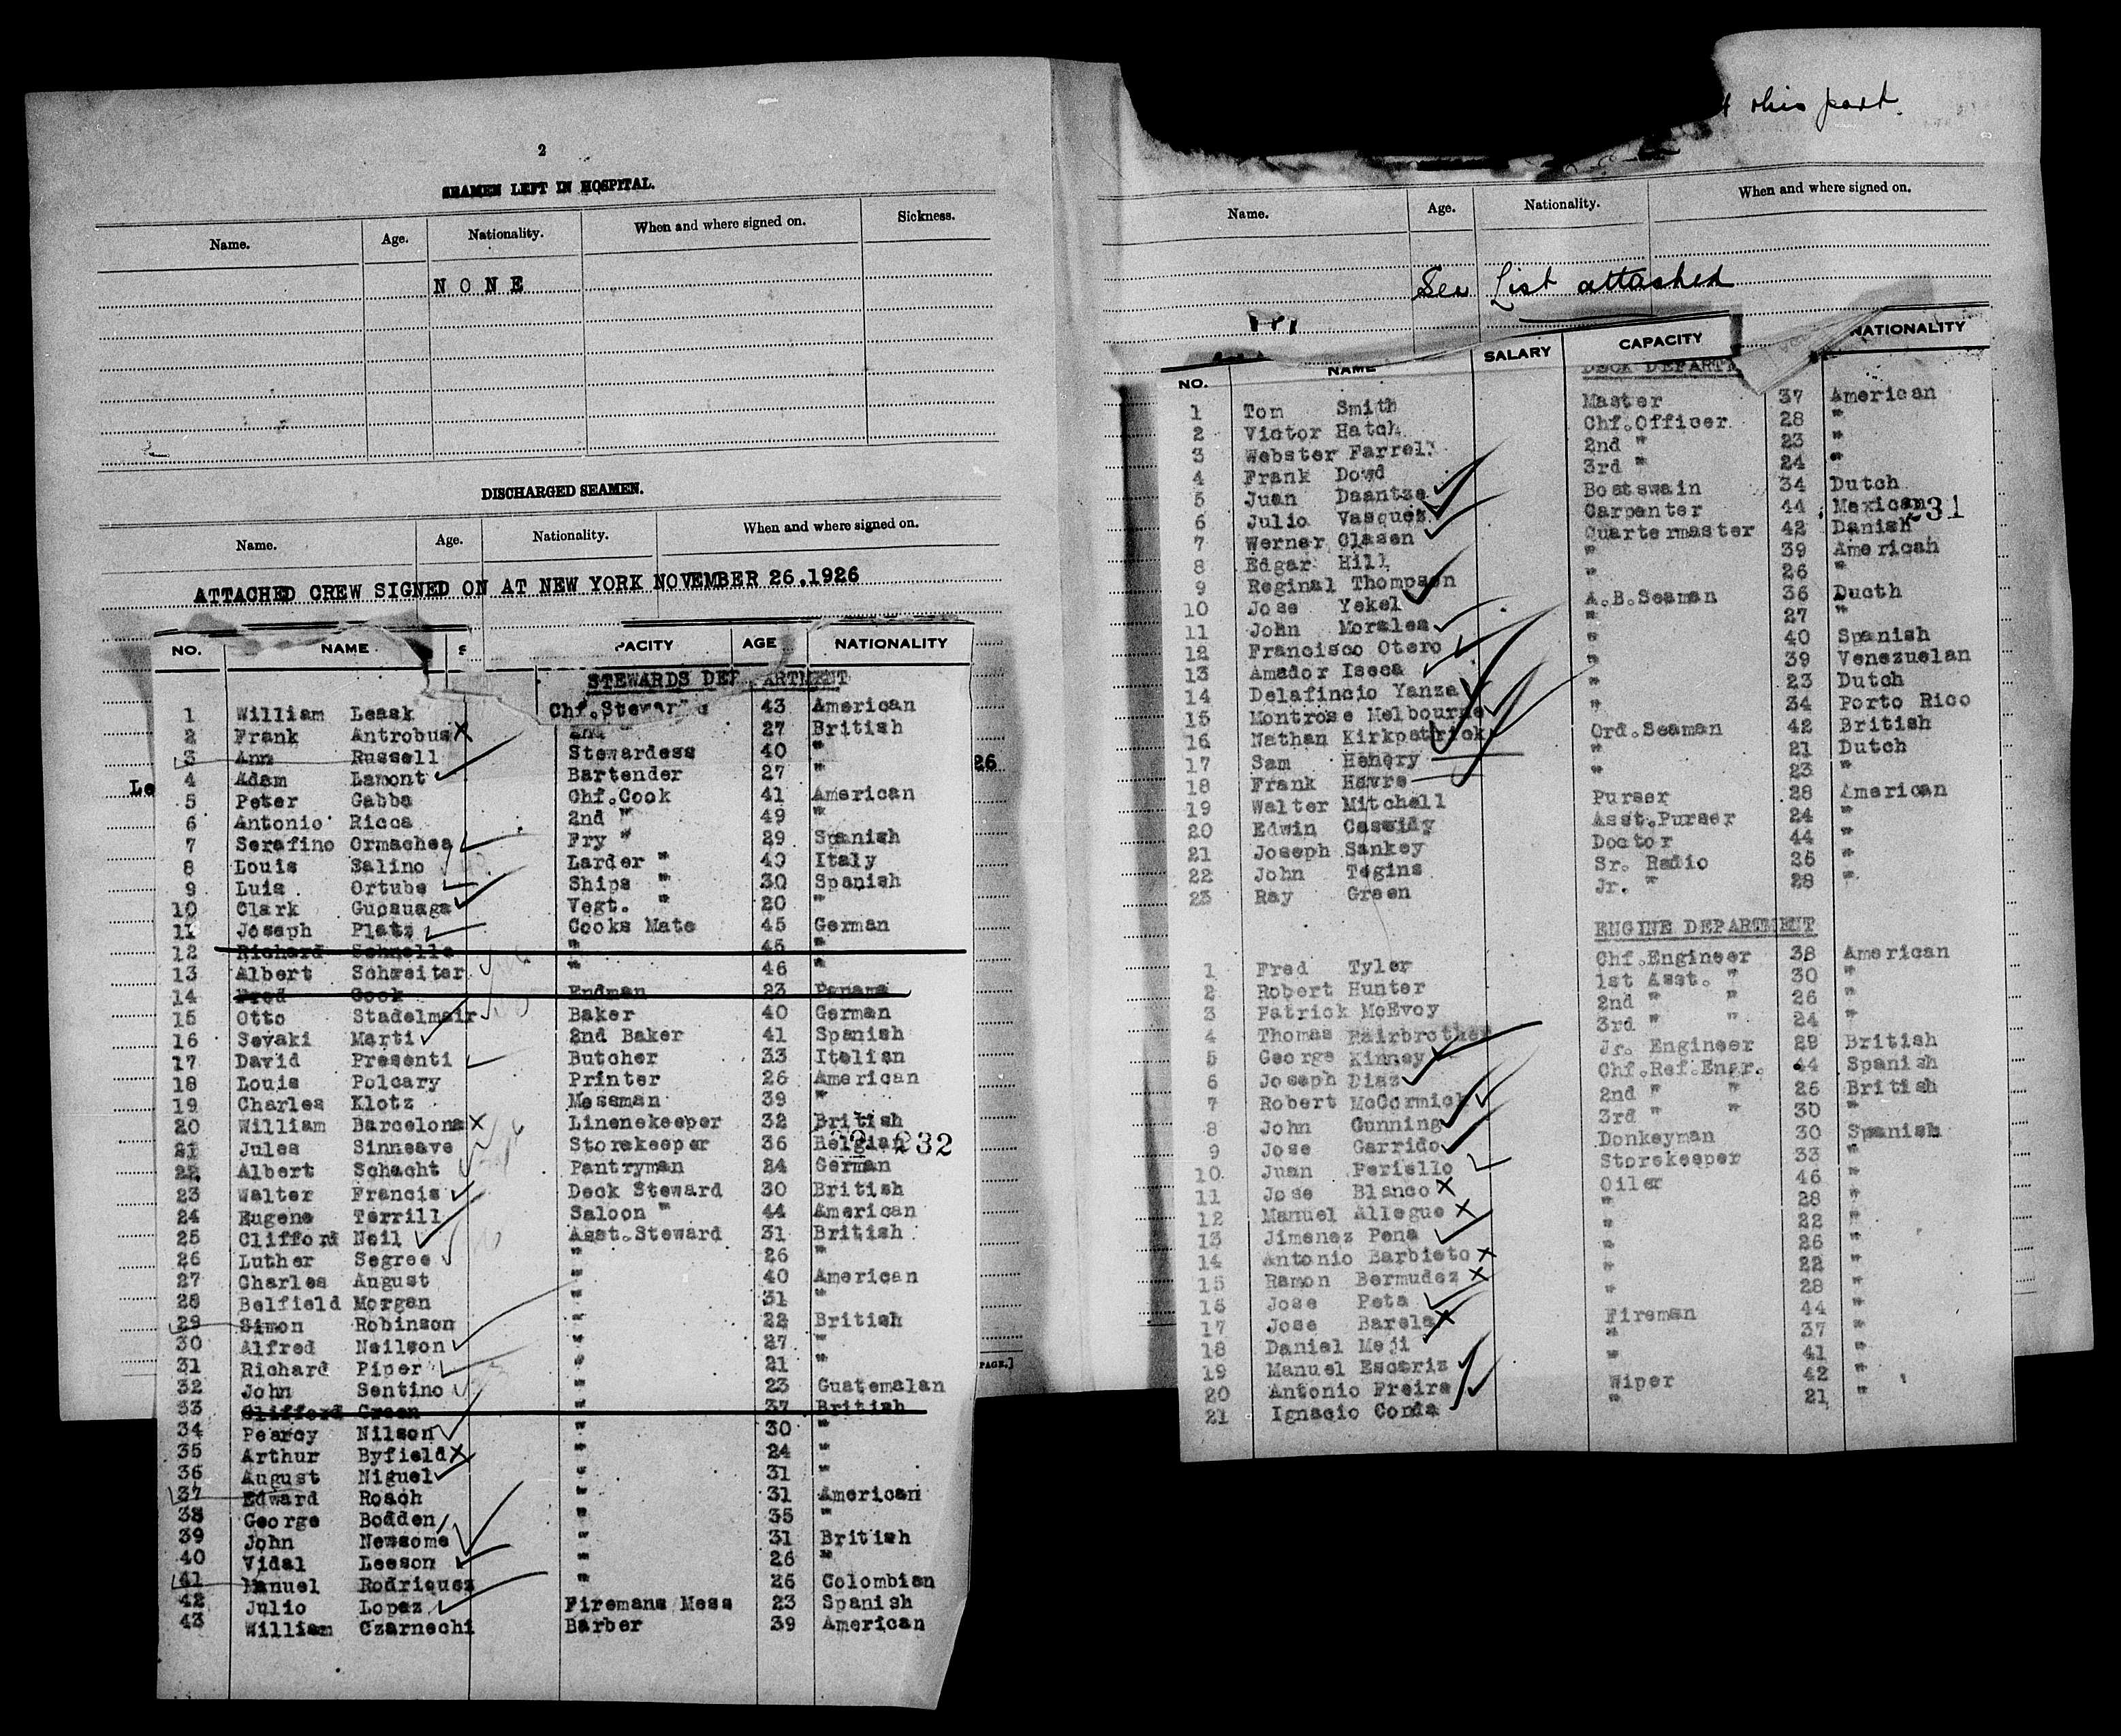 2
SEAMEN LEFT IN HOSPITAL.
Name. Age. Nationality. When and where signed on. Sickness.
NONE
DISCHARGED SEAMEN.
Name. Age. Nationality. When and where signed on.
ATTACHED CREW SIGNED ON AT NEW YORK NOVEMBER 26.1926
NO. NAME S PACITY AGE NATIONALITY
STEWARDS DEPARTMENT
1 William Leask Chf.Steward 43 American
2 Frank Antrobus X 2nd " 27 British
3 Ann Russell Stewardess 40 "
4 Adam Lamont Bartender 27 "
Le 26
5 Peter Gabba Chf.Cook 41 American
6 Antonio Ricca 2nd " 49 "
7 Serafino Ormachea Fry " 29 Spanish
8 Louis Salino Larder " 40 Italy
9 Luis Ortube Ships " 30 Spanish
10 Clark Gucauaga Vegt. " 20 "
11 Joseph Platz Cooks Mate 45 German
12 Richard Schnelle " 45 "
13 Albert Schweiter " 46 "
14 Fred Cook Endman 23 Panama
15 Otto Stadelmair Baker 40 German
16 Sevaki Marti 2nd Baker 41 Spanish
17 David Presenti Butcher 33 Italian
18 Louis Polcary Printer 26 American
19 Charles Klotz Messman 39 "
20 William Barcelona X Linenekeeper 32 British
21 Jules Sinneave Storekeeper 36 Belgian 232
22 Albert Schacht Pantryman 24 German
23 Walter Francis Deck Steward 30 British
24 Eugene Terrill Saloon " 44 American
25 Clifford Neil Asst.Steward 31 British
26 Luther Segree " 26 "
27 Charles August " 40 American
28 Belfield Morgan " 31 "
29 Simon Robinson " 22 British
30 Alfred Neilson " 27 "
31 Richard Piper " 21 "
32 John Sentino " 23 Guatemalan
33 Clifford Green " 37 British
34 Pearcy Nilson " 30 "
35 Arthur Byfield X " 24 "
36 August Niguel " 31 "
37 Edward Roach " 31 American
38 George Bodden " 35 "
39 John Newsome " 31 British
40 Vidal Leeson " 26 "
41 Manuel Rodriquez " 26 Colombian
42 Julio Lopez Firemans Mess 23 Spanish
43 William Czarnechi Barber 39 American
PAGE.]
this port.
Name. Age. Nationality. When and where signed on.
See List attached
NO. NAME SALARY CAPACITY NATIONALITY
DECK DEPARTM
1 Tom Smith Master 37 American
2 Victor Hatch Chf.Officer 28 "
3 Webster Farrell 2nd " 23 "
4 Frank Dowd 3rd " 24 "
5 Juan Daantze Boatswain 34 Dutch
6 Julio Vasquez Carpenter 44 Mexican 231
7 Werner Clasen Quartermaster 42 Danish
8 Edgar Hill " 39 American
9 Reginal Thompson " 26 "
10 Jose Yekel A.B.Seaman 36 Ducth
11 John Morales " 27 "
12 Francisco Otero " 40 Spanish
13 Amador Iseca " 39 Venezuelan
14 Delafincio Yanza " 23 Dutch
15 Montrose Melbourne " 34 Porto Rico
16 Nathan Kirkpatrick Ord.Seaman 42 British
17 Sam Henery " 21 Dutch
18 Frank Havre " 23 "
19 Walter Mitchell Purser 28 American
20 Edwin Cassidy Asst.Purser 24 "
21 Joseph Sankey Doctor 44 "
22 John Tegins Sr. Radio 26 "
23 Ray Green Jr. " 28 "
ENGINE DEPARTMENT
1 Fred Tyler Chf.Engineer 38 American
2 Robert Hunter 1st Asst. " 30 "
3 Patrick McEvoy 2nd " " 26 "
4 Thomas Fairbrother 3rd " " 24 "
5 George Kinney Jr. Engineer 29 British
6 Joseph Diaz Chf.Ref.Engr. 44 Spanish
7 Robert McCormick 2nd " " 26 British
8 John Gunning 3rd " " 30 "
9 Jose Garrido Donkeyman 30 Spanish
10 Juan Feriello Storekeeper 33 "
11 Jose Blanco X Oiler 46 "
12 Manuel Allegue X " 28 "
13 Jimenez Pena " 22 "
14 Antonio Barbieto X " 26 "
15 Ramon Bermudez X " 22 "
16 Jose Peta " 28 "
17 Jose Barela X Fireman 44 "
18 Daniel Meji " 37 "
19 Manuel Escariz " 41 "
20 Antonio Freire Wiper 42 "
21 Ignacio Conda " 21 "